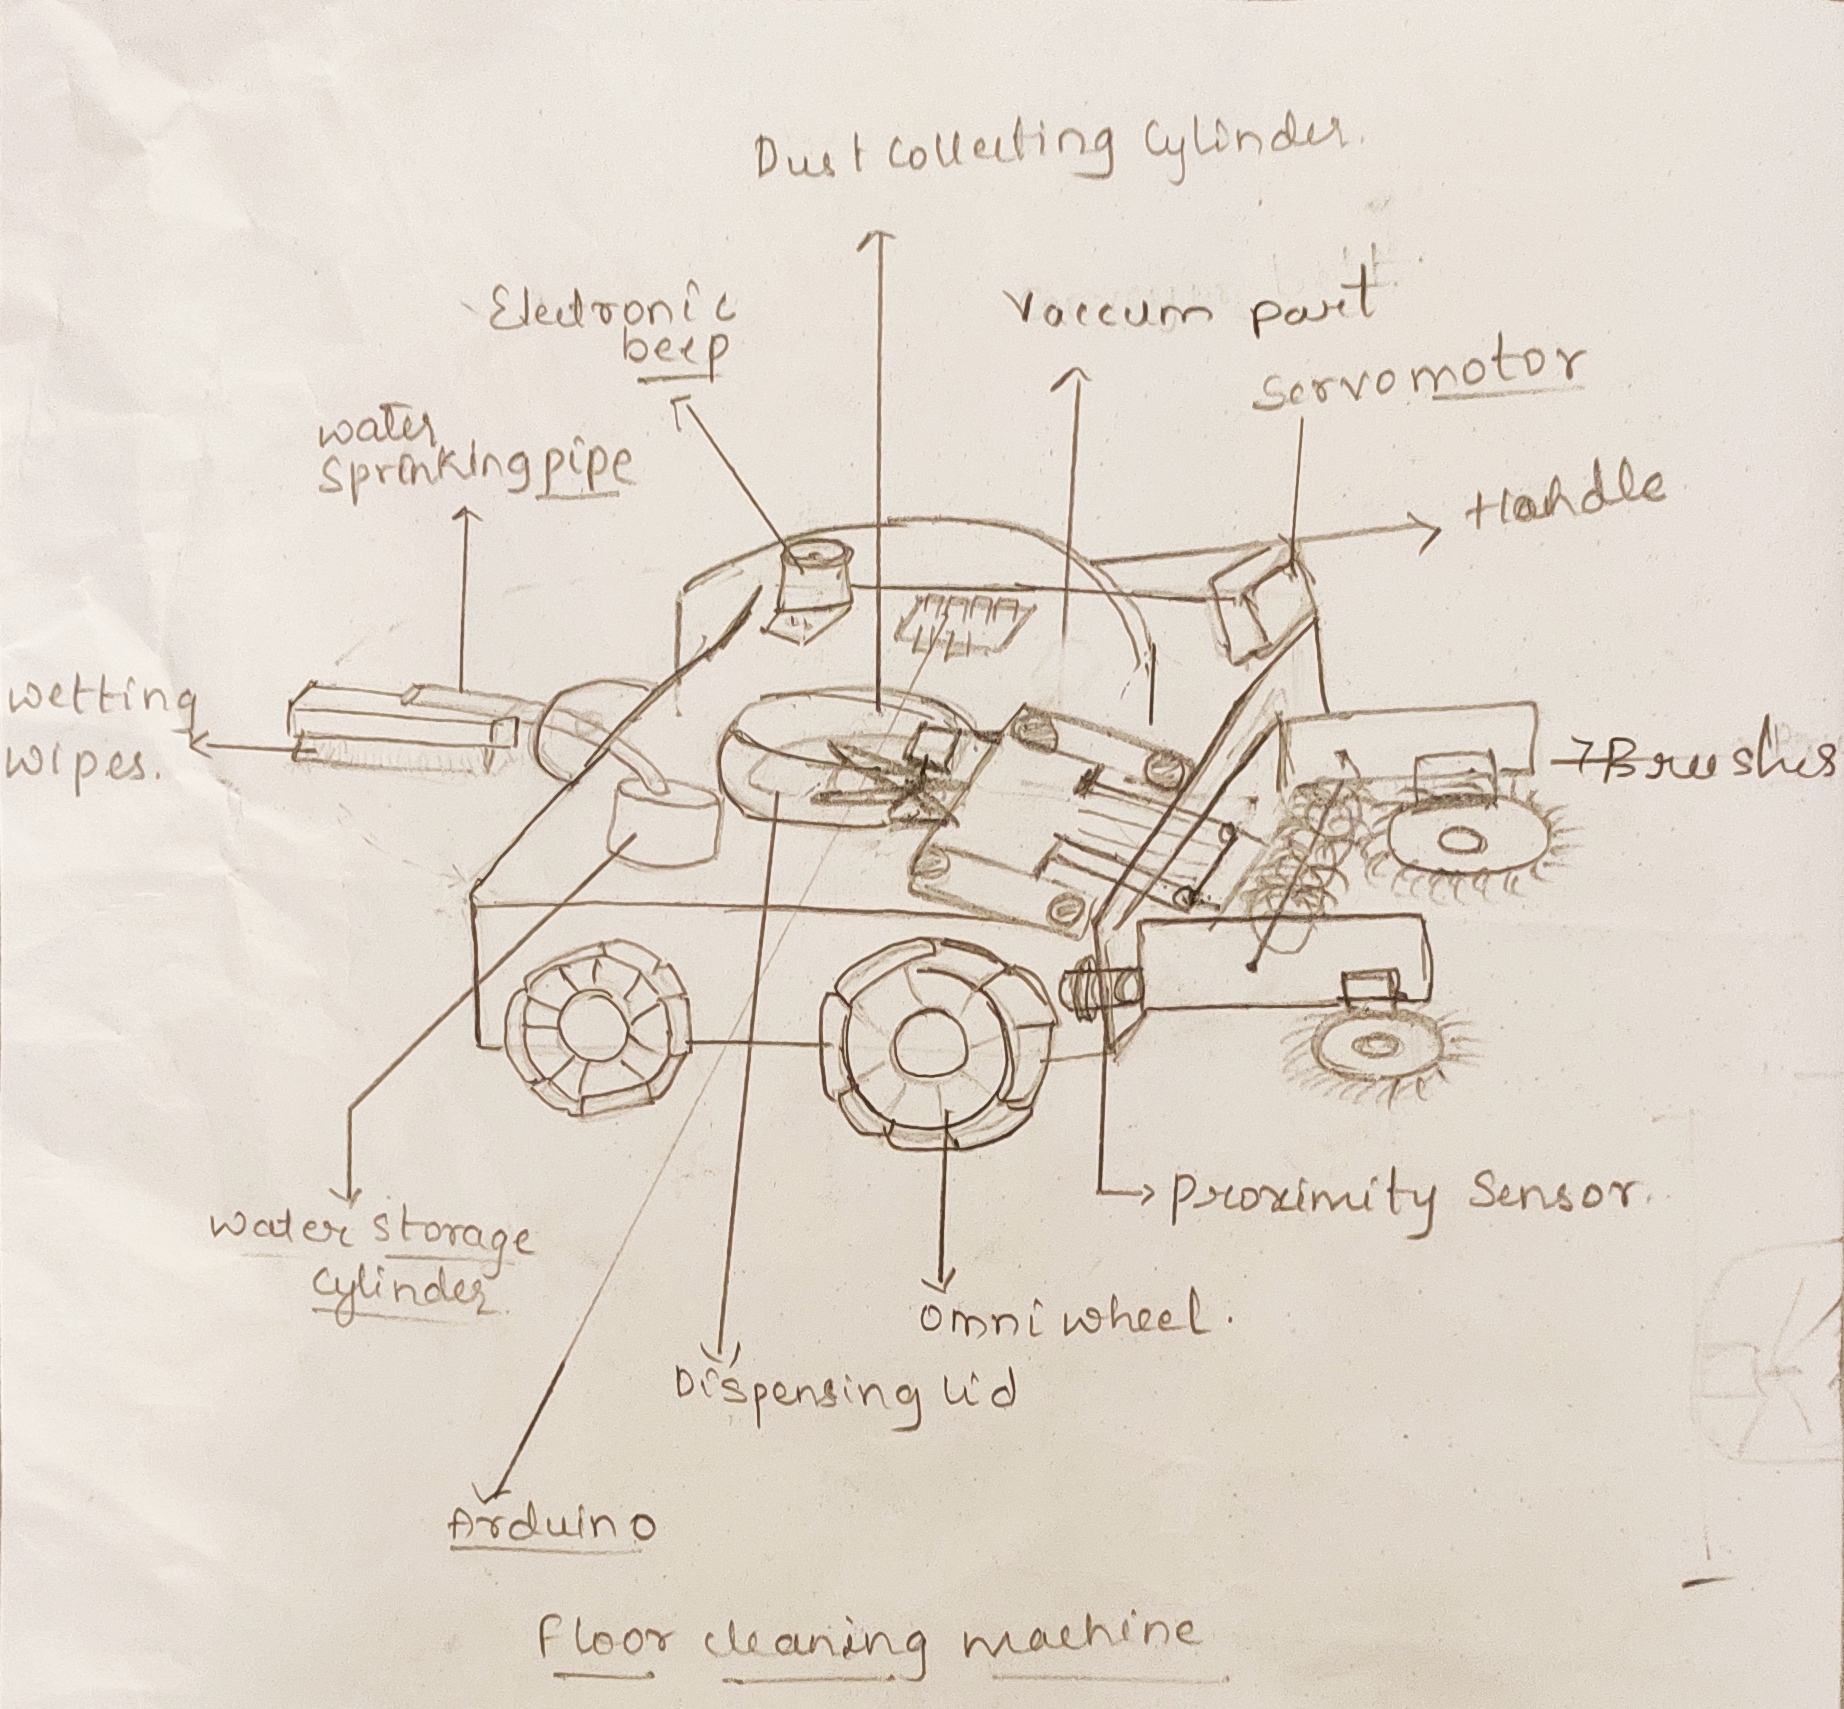 Dust Collecting Cylinder.
Electronic
beep
Vaccum part
Servomotor
water
Sprinking pipe
Handle
Wetting
wipes.
Brushes
Proximity Sensor.
Water storage
Cylinder.
Omni wheel.
Dispensing lid
Arduino
Floor cleaning machine